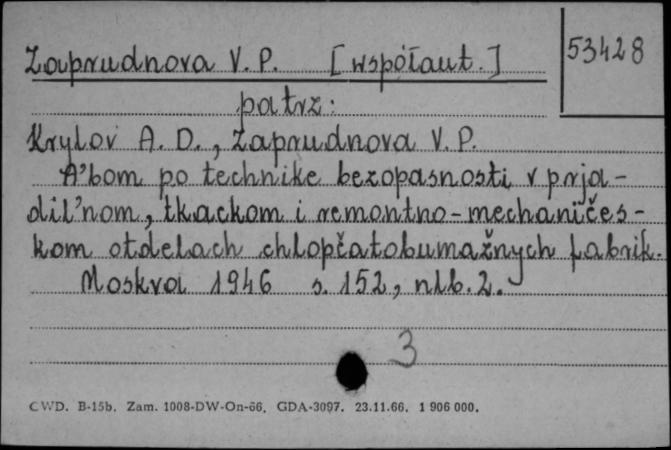 Zaprudnova V. P. [współaut.]
53428
patrz:
Krylov A. D., Zaprudnova V. P.
Al'bom po technike bezopasnosti v prja-
dil'nom, tkackom i remontno-mechaničes-
kom otdelach chlopčatobumažnych fabrik.
Moskva 1946 s. 152, nlb. 2.
3
CWD. B-15b. Zam. 1008-DW-On-66. GDA-3097. 23.11.66. 1 906 000.